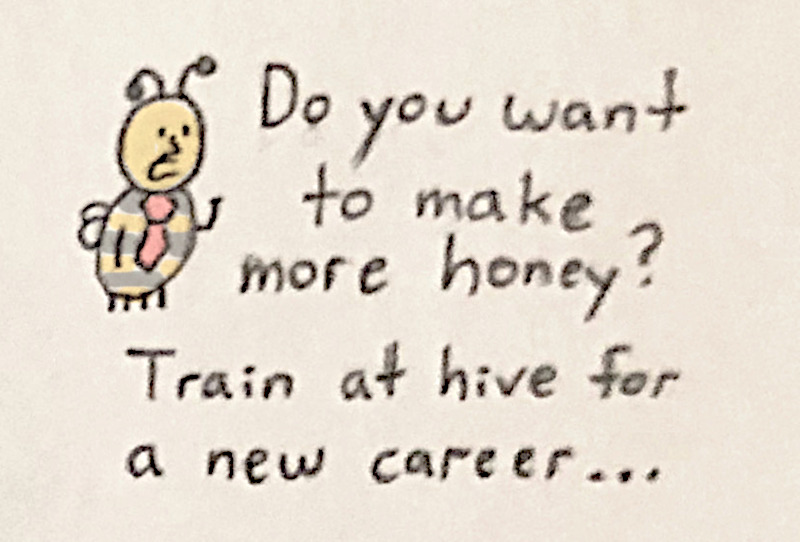 Do you want
to make
more honey?
Train at hive for
a new career...